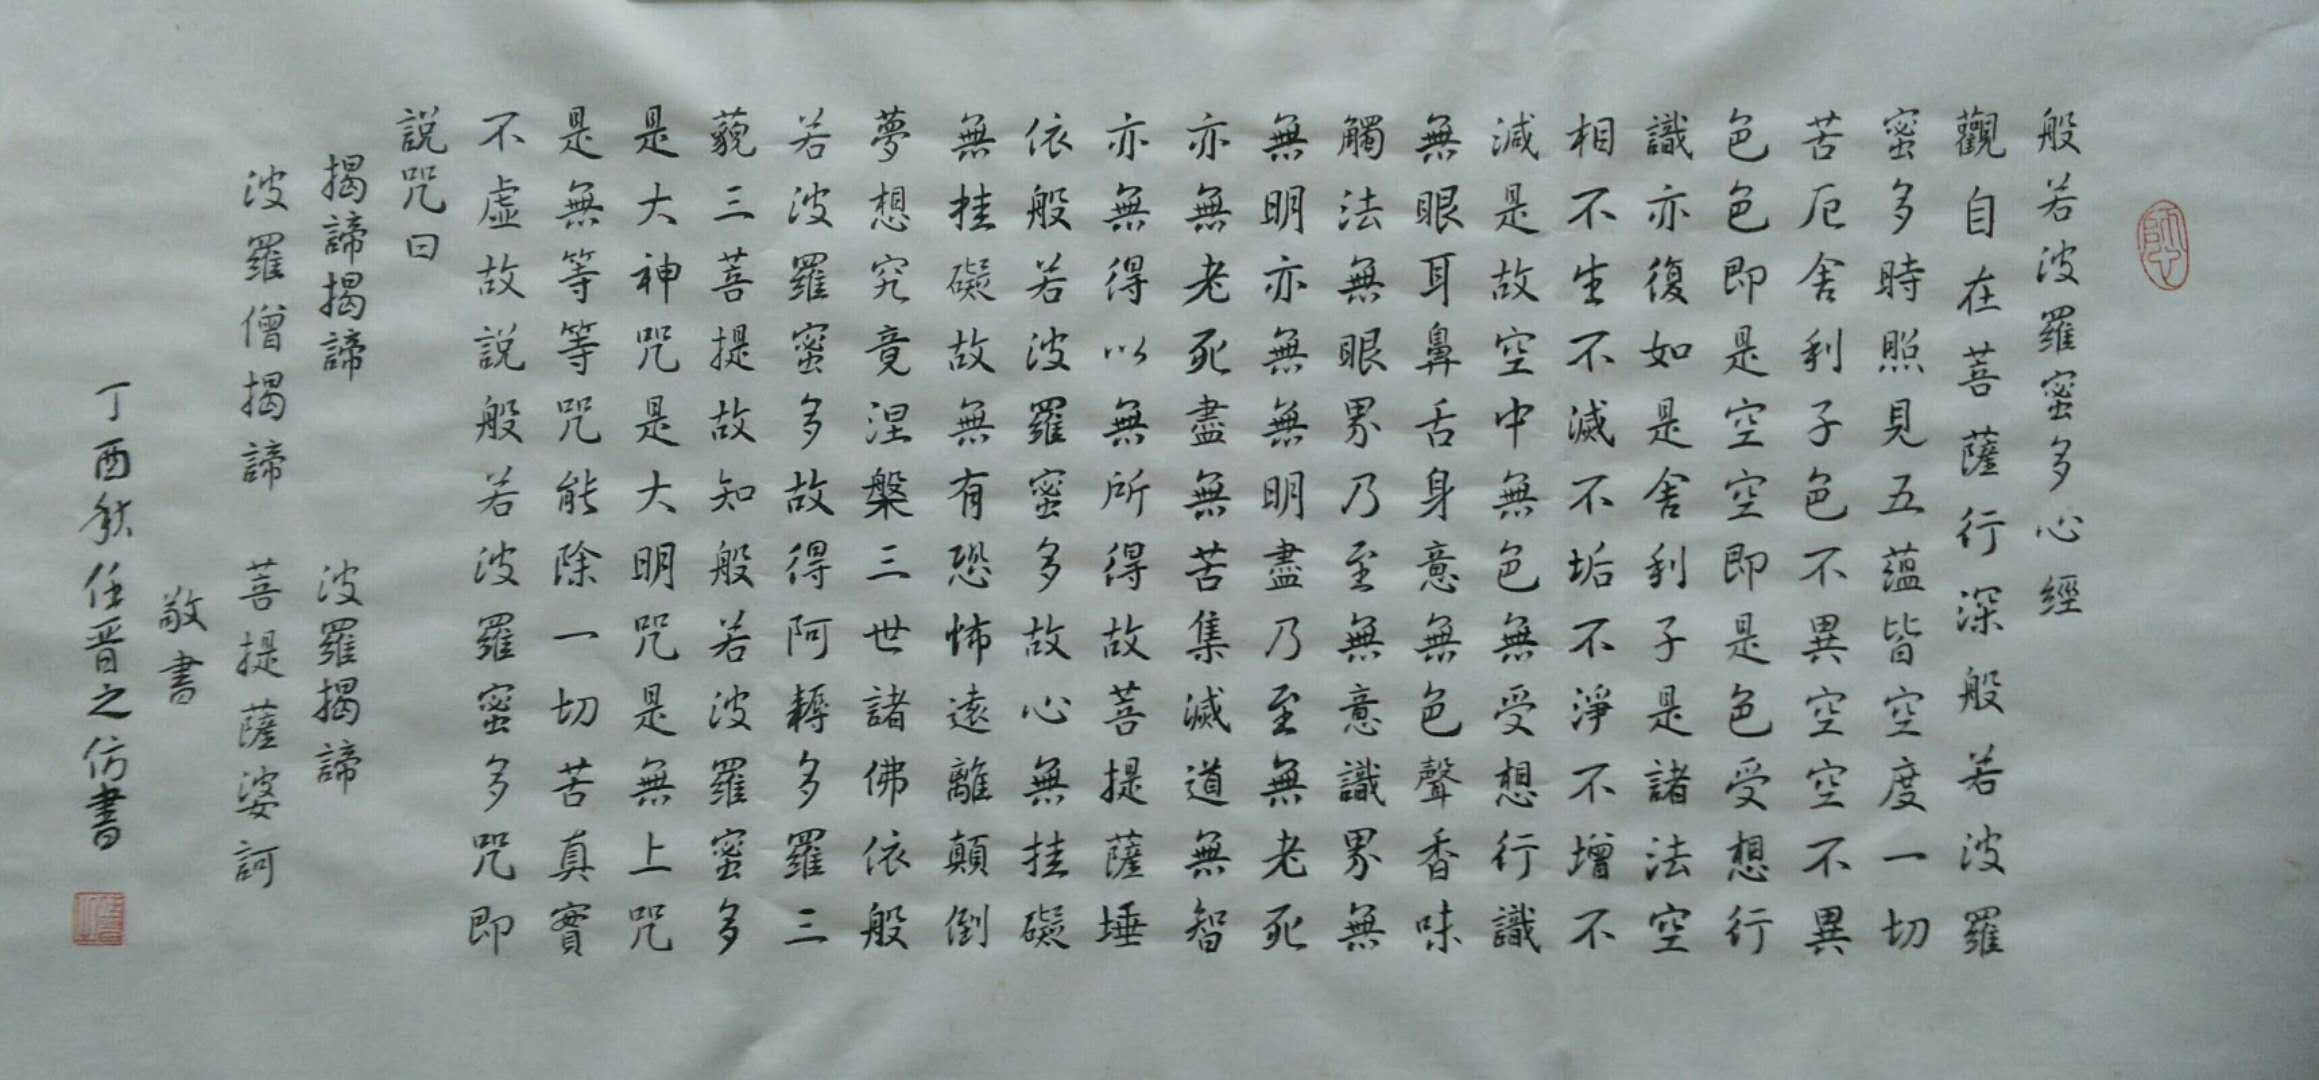 般若波羅蜜多心經
觀自在菩薩行深般若波羅
蜜多時照見五蕴皆空度一切
苦厄舍利子色不異空空不異
色色即是空空即是色受想行
識亦復如是舍利子是諸法空
相不生不滅不垢不淨不增不
減是故空中無色無受想行識
無眼耳鼻舌身意無色聲香味
觸法無眼界乃至無意識界無
無明亦無無明盡乃至無老死
亦無老死盡無苦集滅道無智
亦無得以無所得故菩提薩埵
依般若波羅蜜多故心無挂礙
無挂礙故無有恐怖遠離顛倒
夢想究竟涅槃三世諸佛依般
若波羅蜜多故得阿耨多羅三
藐三菩提故知般若波羅蜜多
是大神咒是大明咒是無上咒
是無等等咒能除一切苦真實
不虛故説般若波羅蜜多咒即
説咒曰
揭諦揭諦 波羅揭諦
波羅僧揭諦 菩提薩婆訶
敬書
丁酉秋任晋之仿書